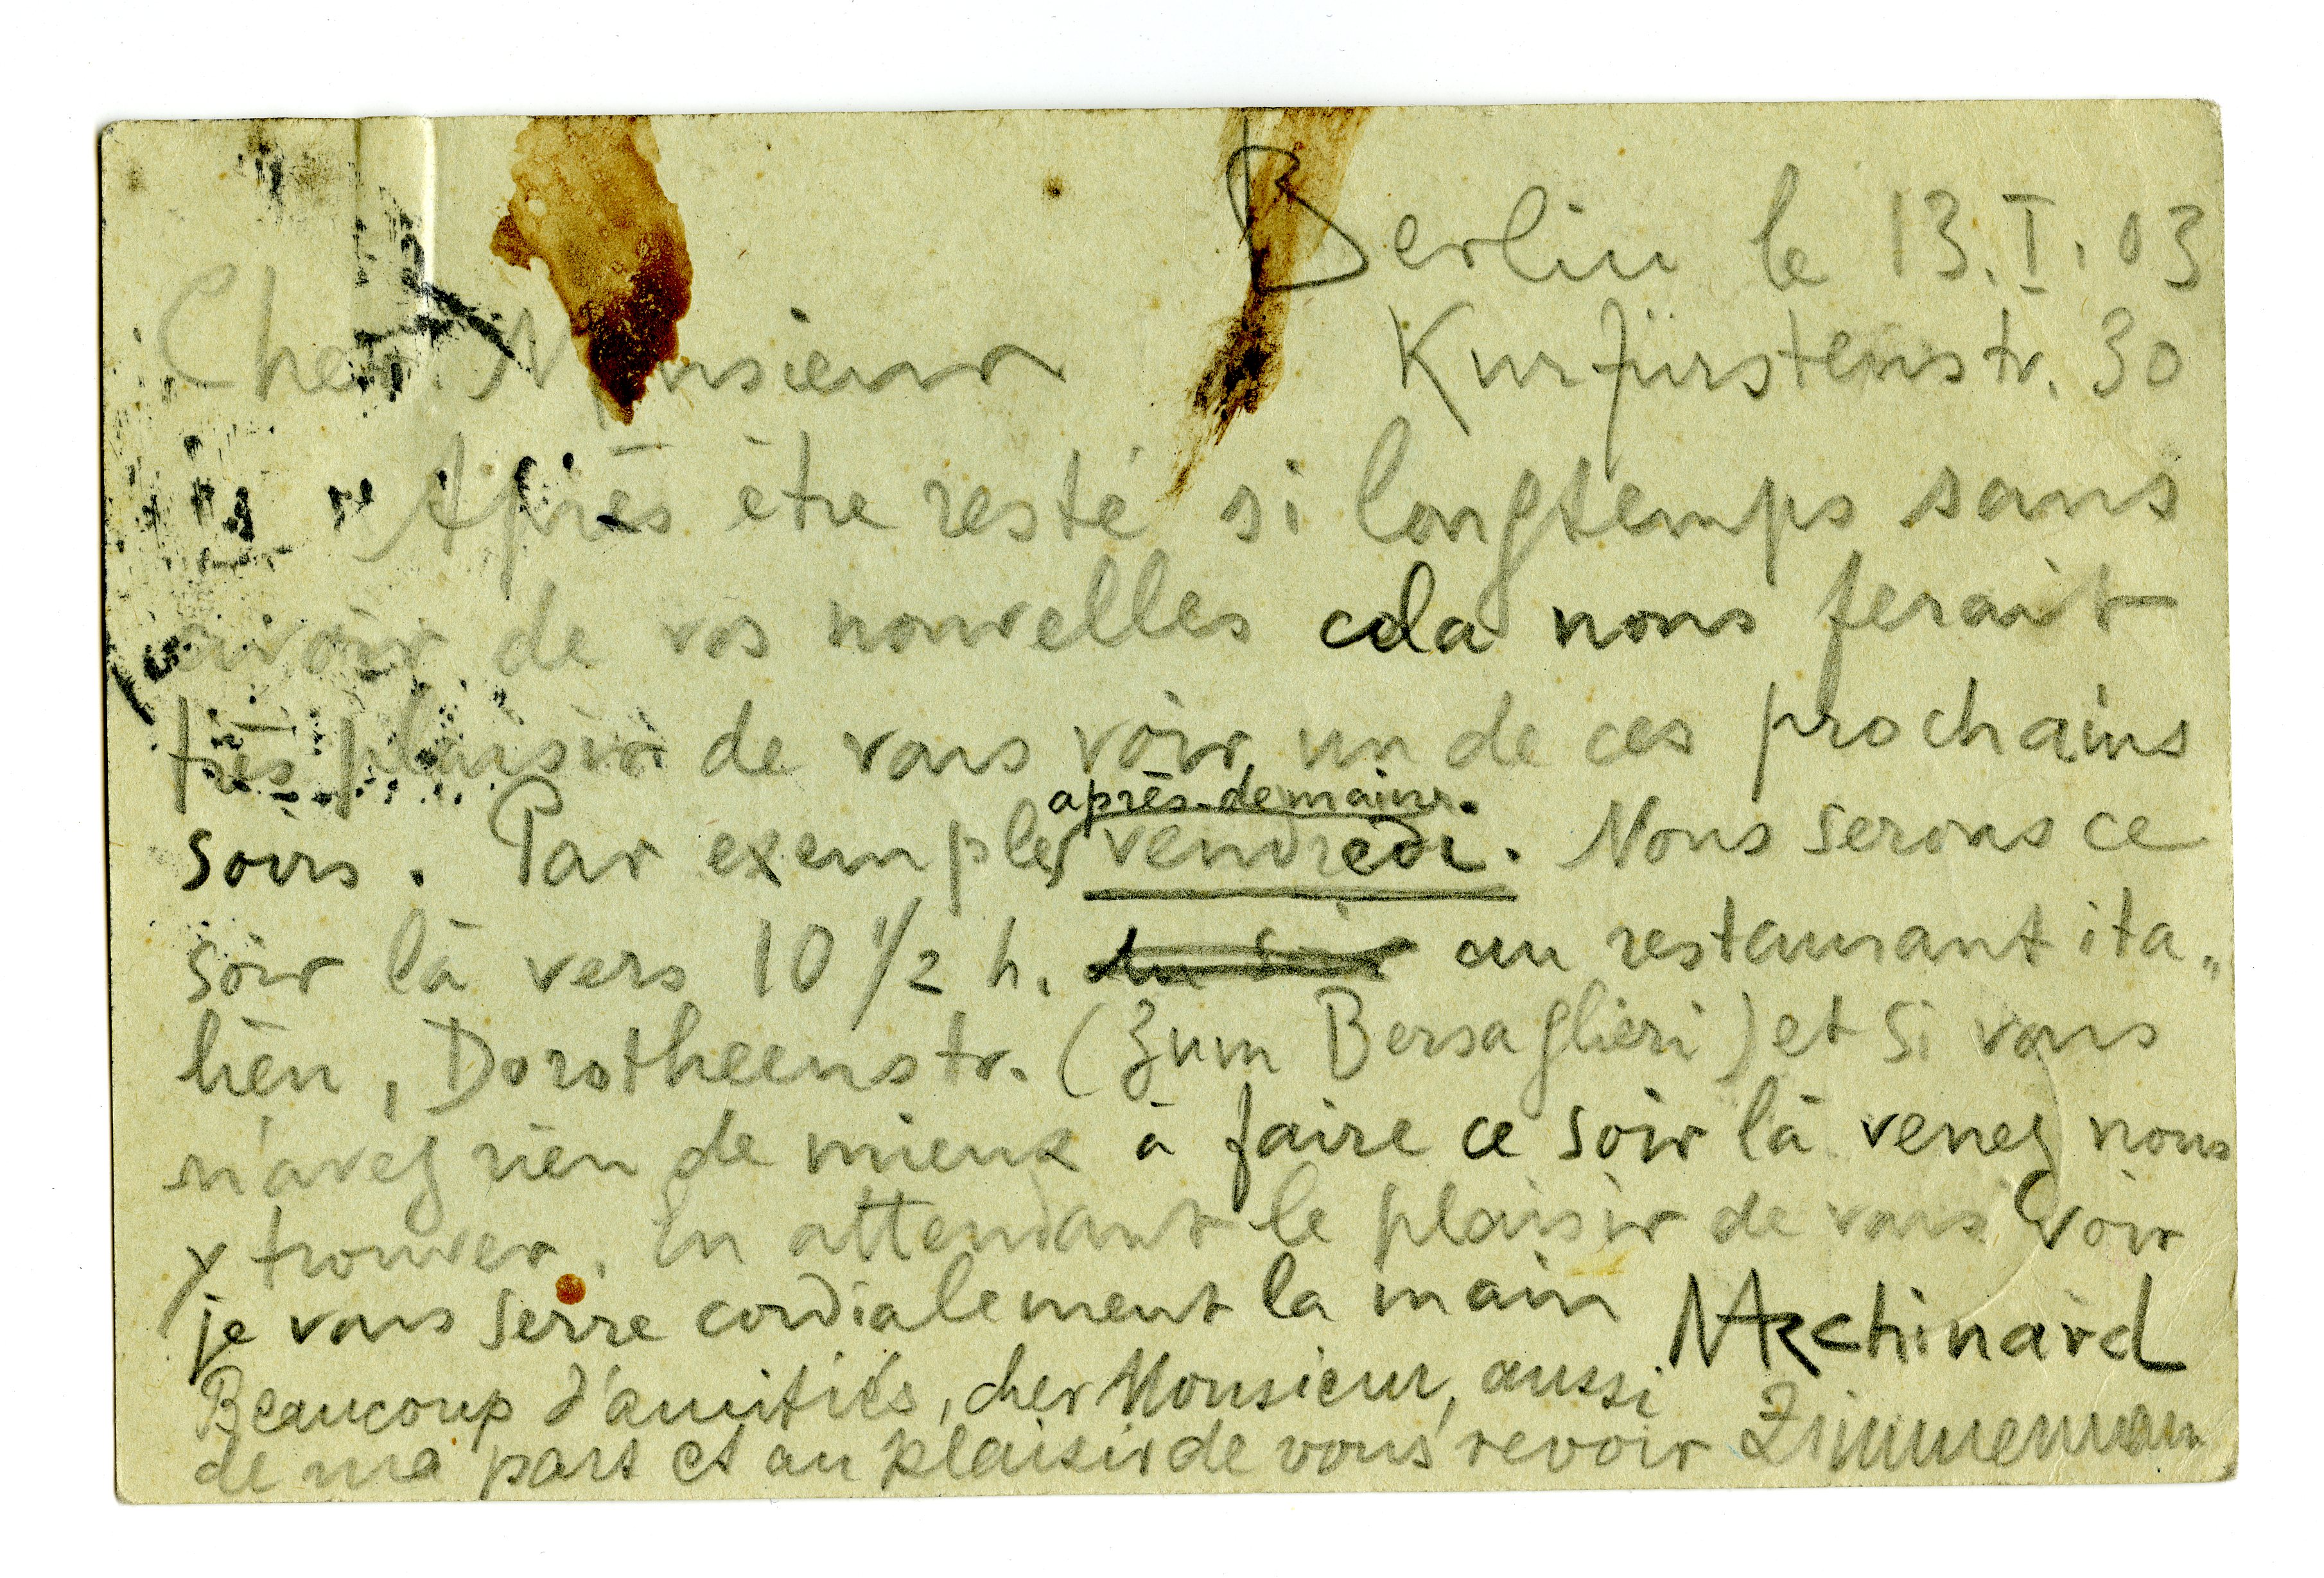 Berlin le 13.I.03
Kurfürstenstr. 30
Cher Monsieur
Après être resté si longtemps sans
avoir de vos nouvelles cela nous ferait
très plaisir de vous voir un de ces prochains
après-demain.
soirs. Par exemple vendredi. Nous serons ce
soir là vers 10 1/2 h. du soir au restaurant ita„
lien, Dorotheenstr. (Zum Bersaglieri) et si vous
n'avez rien de mieux à faire ce soir là venez nous
y trouver. En attendant le plaisir de vous voir
je vous serre cordialement la main MArchinard
Beaucoup d'amitiés, cher Monsieur, aussi
de ma part et au plaisir de vous revoir Zimmerman